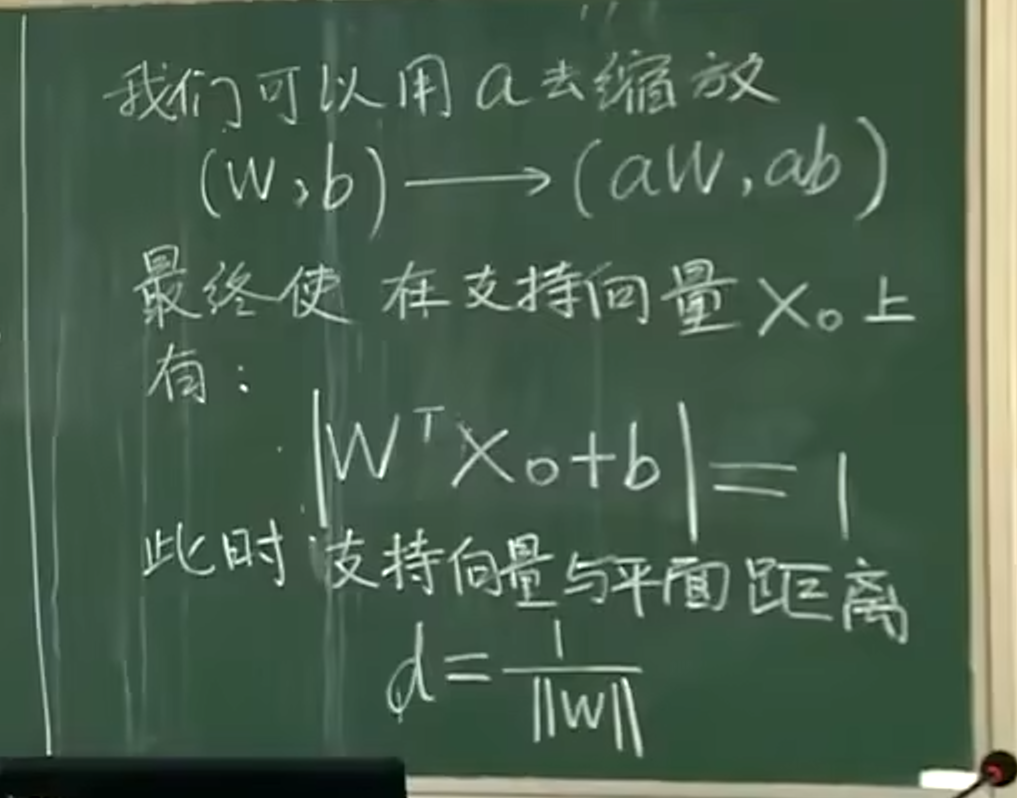 我们可以用a去缩放
(W,b)⟶(aW,ab)
最终使 在支持向量X₀上
有:
|WᵀX₀+b|=1
此时 支持向量与平面距离
d=1/||W||